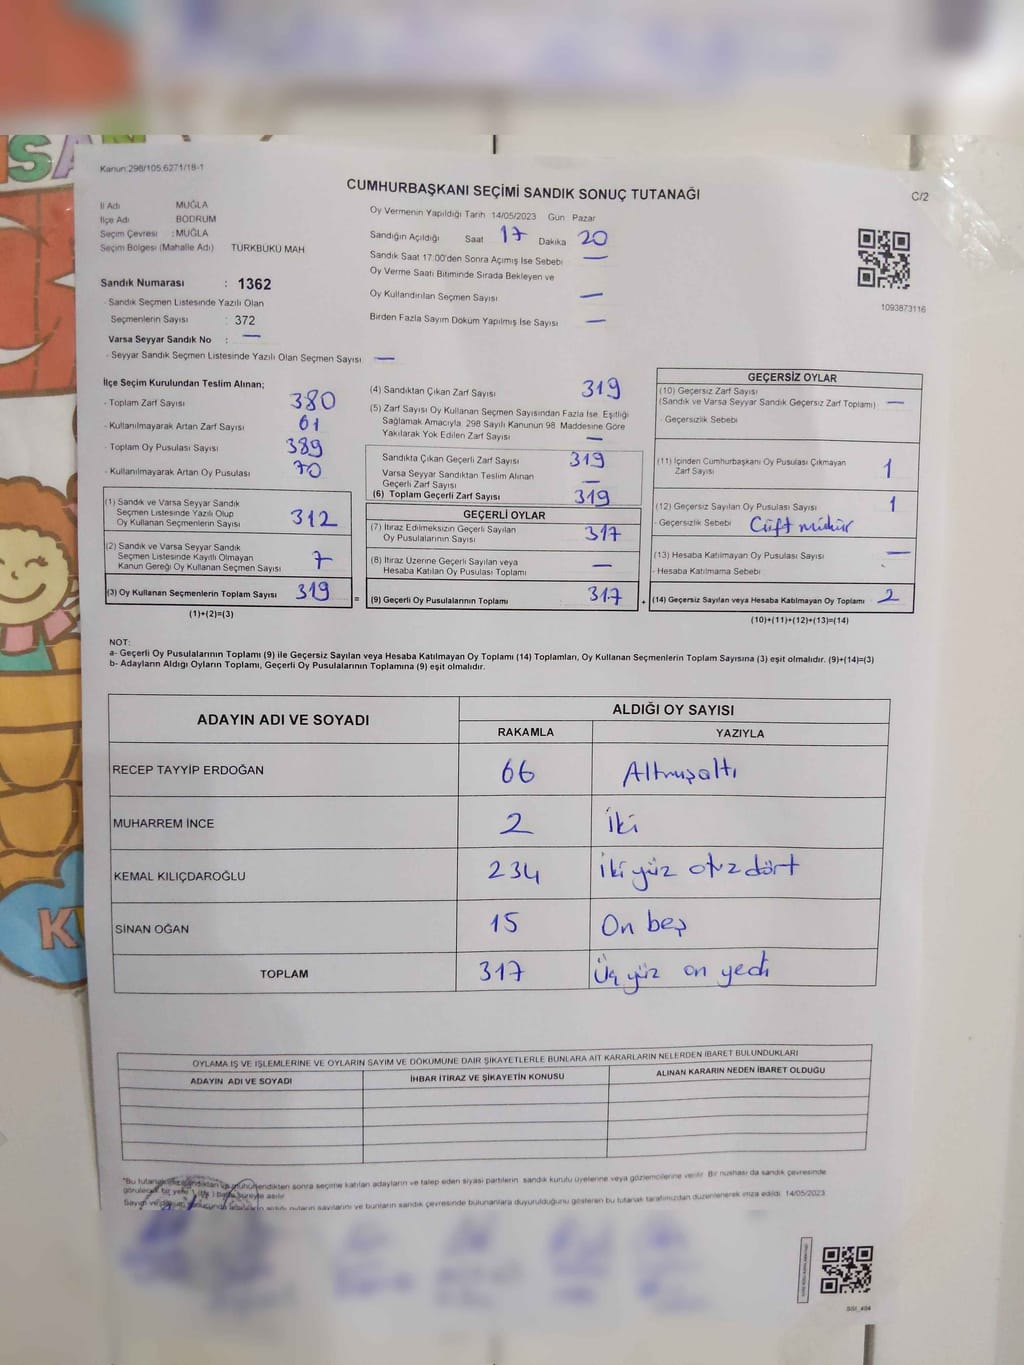 Kanun:298/105,6271/18-1
CUMHURBAŞKANI SEÇİMİ SANDIK SONUÇ TUTANAĞI
C/2
İl Adı MUĞLA
İlçe Adı BODRUM
Seçim Çevresi :MUĞLA
Seçim Bölgesi (Mahalle Adı) TÜRKBÜKÜ MAH
Oy Vermenin Yapıldığı Tarih 14/05/2023 Gün Pazar
Sandığın Açıldığı Saat 17 Dakika 20
Sandık Saat 17:00'den Sonra Açımış İse Sebebi —
Oy Verme Saati Bitiminde Sırada Bekleyen ve
Oy Kullandırılan Seçmen Sayısı —
Birden Fazla Sayım Döküm Yapılmış İse Sayısı —
1093873116
Sandık Numarası : 1362
- Sandık Seçmen Listesinde Yazılı Olan
Seçmenlerin Sayısı : 372
Varsa Seyyar Sandık No : —
- Seyyar Sandık Seçmen Listesinde Yazılı Olan Seçmen Sayısı —
İlçe Seçim Kurulundan Teslim Alınan;
- Toplam Zarf Sayısı 380
- Kullanılmayarak Artan Zarf Sayısı 61
- Toplam Oy Pusulası Sayısı 389
- Kullanılmayarak Artan Oy Pusulası 70
(1) Sandık ve Varsa Seyyar Sandık
Seçmen Listesinde Yazılı Olup
Oy Kullanan Seçmenlerin Sayısı 312
(2) Sandık ve Varsa Seyyar Sandık
Seçmen Listesinde Kayıtlı Olmayan
Kanun Gereği Oy Kullanan Seçmen Sayısı 7
(3) Oy Kullanan Seçmenlerin Toplam Sayısı 319
(1)+(2)=(3)
=
(4) Sandıktan Çıkan Zarf Sayısı 319
(5) Zarf Sayısı Oy Kullanan Seçmen Sayısından Fazla İse, Eşitliği
Sağlamak Amacıyla, 298 Sayılı Kanunun 98. Maddesine Göre
Yakılarak Yok Edilen Zarf Sayısı —
Sandıkta Çıkan Geçerli Zarf Sayısı 319
Varsa Seyyar Sandıktan Teslim Alınan
Geçerli Zarf Sayısı —
(6) Toplam Geçerli Zarf Sayısı 319
GEÇERLİ OYLAR
(7) İtiraz Edilmeksizin Geçerli Sayılan
Oy Pusulalarının Sayısı 317
(8) İtiraz Üzerine Geçerli Sayılan veya
Hesaba Katılan Oy Pusulası Toplamı —
(9) Geçerli Oy Pusulalarının Toplamı : 317
+
GEÇERSİZ OYLAR
(10) Geçersiz Zarf Sayısı
(Sandık ve Varsa Seyyar Sandık Geçersiz Zarf Toplamı) —
- Geçersizlik Sebebi
(11) İçinden Cumhurbaşkanı Oy Pusulası Çıkmayan
Zarf Sayısı 1
(12) Geçersiz Sayılan Oy Pusulası Sayısı 1
- Geçersizlik Sebebi Çift mühür
(13) Hesaba Katılmayan Oy Pusulası Sayısı —
- Hesaba Katılmama Sebebi
(14) Geçersiz Sayılan veya Hesaba Katılmayan Oy Toplamı 2
(10)+(11)+(12)+(13)=(14)
NOT:
a- Geçerli Oy Pusulalarının Toplamı (9) ile Geçersiz Sayılan veya Hesaba Katılmayan Oy Toplamı (14) Toplamları, Oy Kullanan Seçmenlerin Toplam Sayısına (3) eşit olmalıdır. (9)+(14)=(3)
b- Adayların Aldığı Oyların Toplamı, Geçerli Oy Pusulalarının Toplamına (9) eşit olmalıdır.
ADAYIN ADI VE SOYADI ALDIĞI OY SAYISI
RAKAMLA YAZIYLA
RECEP TAYYİP ERDOĞAN 66 Altmışaltı
MUHARREM İNCE 2 İki
KEMAL KILIÇDAROĞLU 234 İki yüz otuz dört
SİNAN OĞAN 15 On beş
TOPLAM 317 Üç yüz on yedi
OYLAMA İŞ VE İŞLEMLERİNE VE OYLARIN SAYIM VE DÖKÜMÜNE DAİR ŞİKAYETLERLE BUNLARA AİT KARARLARIN NELERDEN İBARET BULUNDUKLARI
ADAYIN ADI VE SOYADI İHBAR İTİRAZ VE ŞİKAYETİN KONUSU ALINAN KARARIN NEDEN İBARET OLDUĞU
sonra seçime katılan adayların ve talep eden siyasi partilerin sandık kurulu üyelerine veya gözlemcilerine verilir. Bir nüshası da sandık çevresinde
sayılarını ve bunların sandık çevresinde bulunanlara duyurulduğunu gösteren bu tutanak tarafımızdan düzenlenerek imza edildi. 14/05/2023